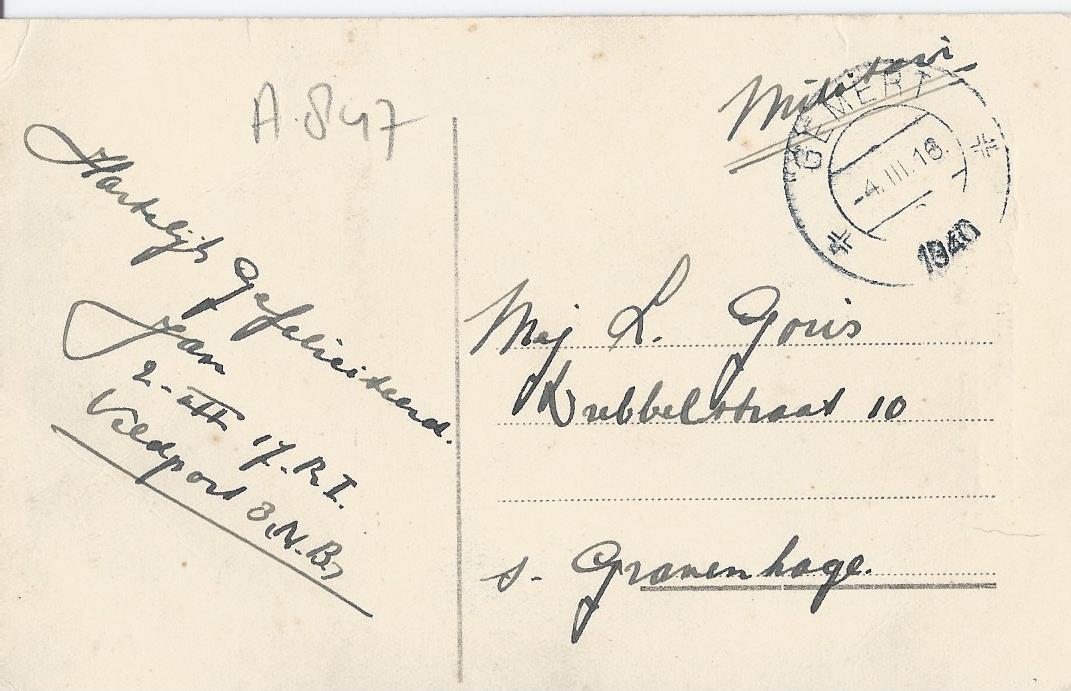 A.847
Hartelijk Gefeliciteerd.
Jan
2-III 17.R.I.
Veldpost 3.N.B.
Militair
GEMERT
-4.III.16.
1940
Mej L. Goris
Dubbelstraat 10
s. Gravenhage.